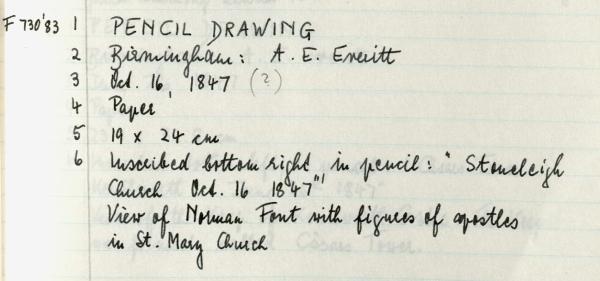 F 730'83 1 PENCIL DRAWING
2 Birmingham: A. E. Everitt
3 Oct. 16, 1847 (?)
4 Paper
5 19 x 24 cm
6 Inscribed bottom right in pencil: "Stoneleigh
Church Oct. 16 1847",
View of Norman Font with figures of apostles
in St. Mary Church